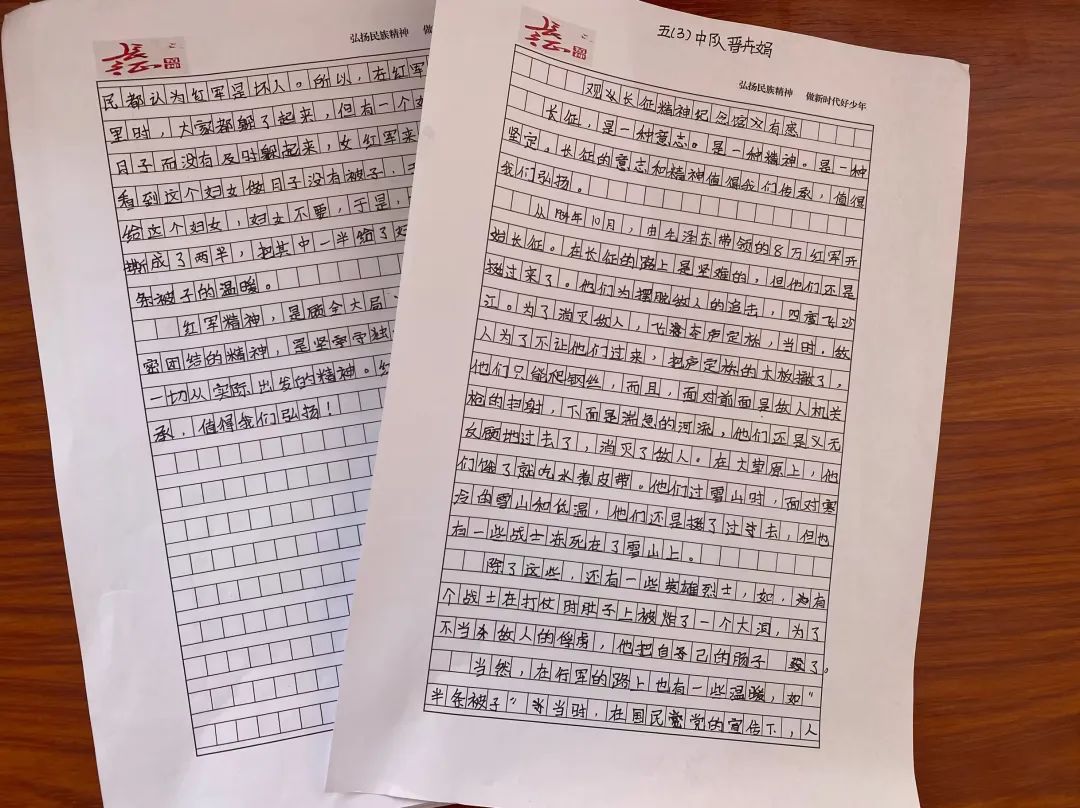 五(3)中队晋卉娟
弘扬民族精神 做新时代好少年
观《长征精神纪念馆》有感
长征,是一种意志。是一种精神。是一种
坚定,长征的意志和精神值得我们传承,值得
我们弘扬。
从1934年10月,由毛泽东带领的8万红军开
始长征。在长征的路上是坚难的,但他们还是
挺过来了。他们为摆脱敌人的追击,四度飞沙
江。为了消灭敌人,飞夺卢定桥,当时,敌
人为了不让他们过来,把卢定桥的木板撤了,
他们只能爬钢丝,而且,面对前面是敌人机关
枪的扫射,下面是湍急的河流,他们还是义无
反顾地过去了,消灭了敌人。在大草原上,他
们饿了就吃水煮皮带。他们过雪山时,面对寒
冷的雪山和低温,他们还是挺了过去,但也
有一些战士冻死在了雪山上。
除了这些,还有一些英雄烈士,如,有
个战士在打仗时肚子上被炸了一个大洞,为了
不当敌人的俘虏,他把自己的肠子 了。
当然,在行军的路上也有一些温暖,如“
半条被子”当时,在国民党的宣传下,人
弘扬民族精神 做
民都认为红军是坏人。所以,在红军
里时,大家都躲了起来,但有一个
日子而没有及时躲起来,女红军来
看到这个妇女做月子没有被子,于
给这个妇女,妇女不要,于是,
撕成了两半,把其中一半给了妇
条被子的温暖。
红军精神,是顾全大局、
密团结的精神,是坚守独
一切从实际出发的精神。红
承,值得我们弘扬!